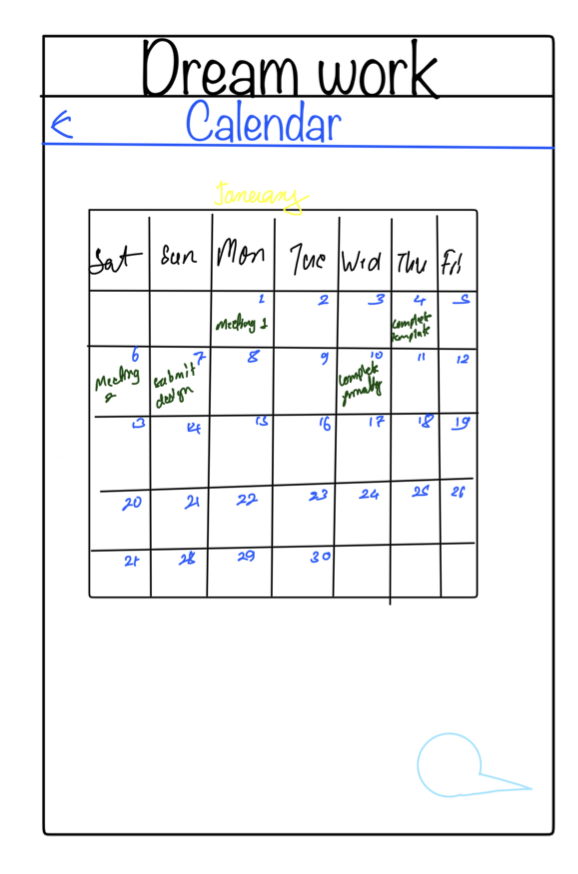 Dream work
Calendar
January
Sat Sun Mon Tue Wed Thu Fri
1 2 3 4 5
Meeting 1
complet
template
6 7 8 9 10 11 12
Meeting
2
submit
design
complet
13 14 15 16 17 18 19
20 21 22 23 24 25 26
27 28 29 30